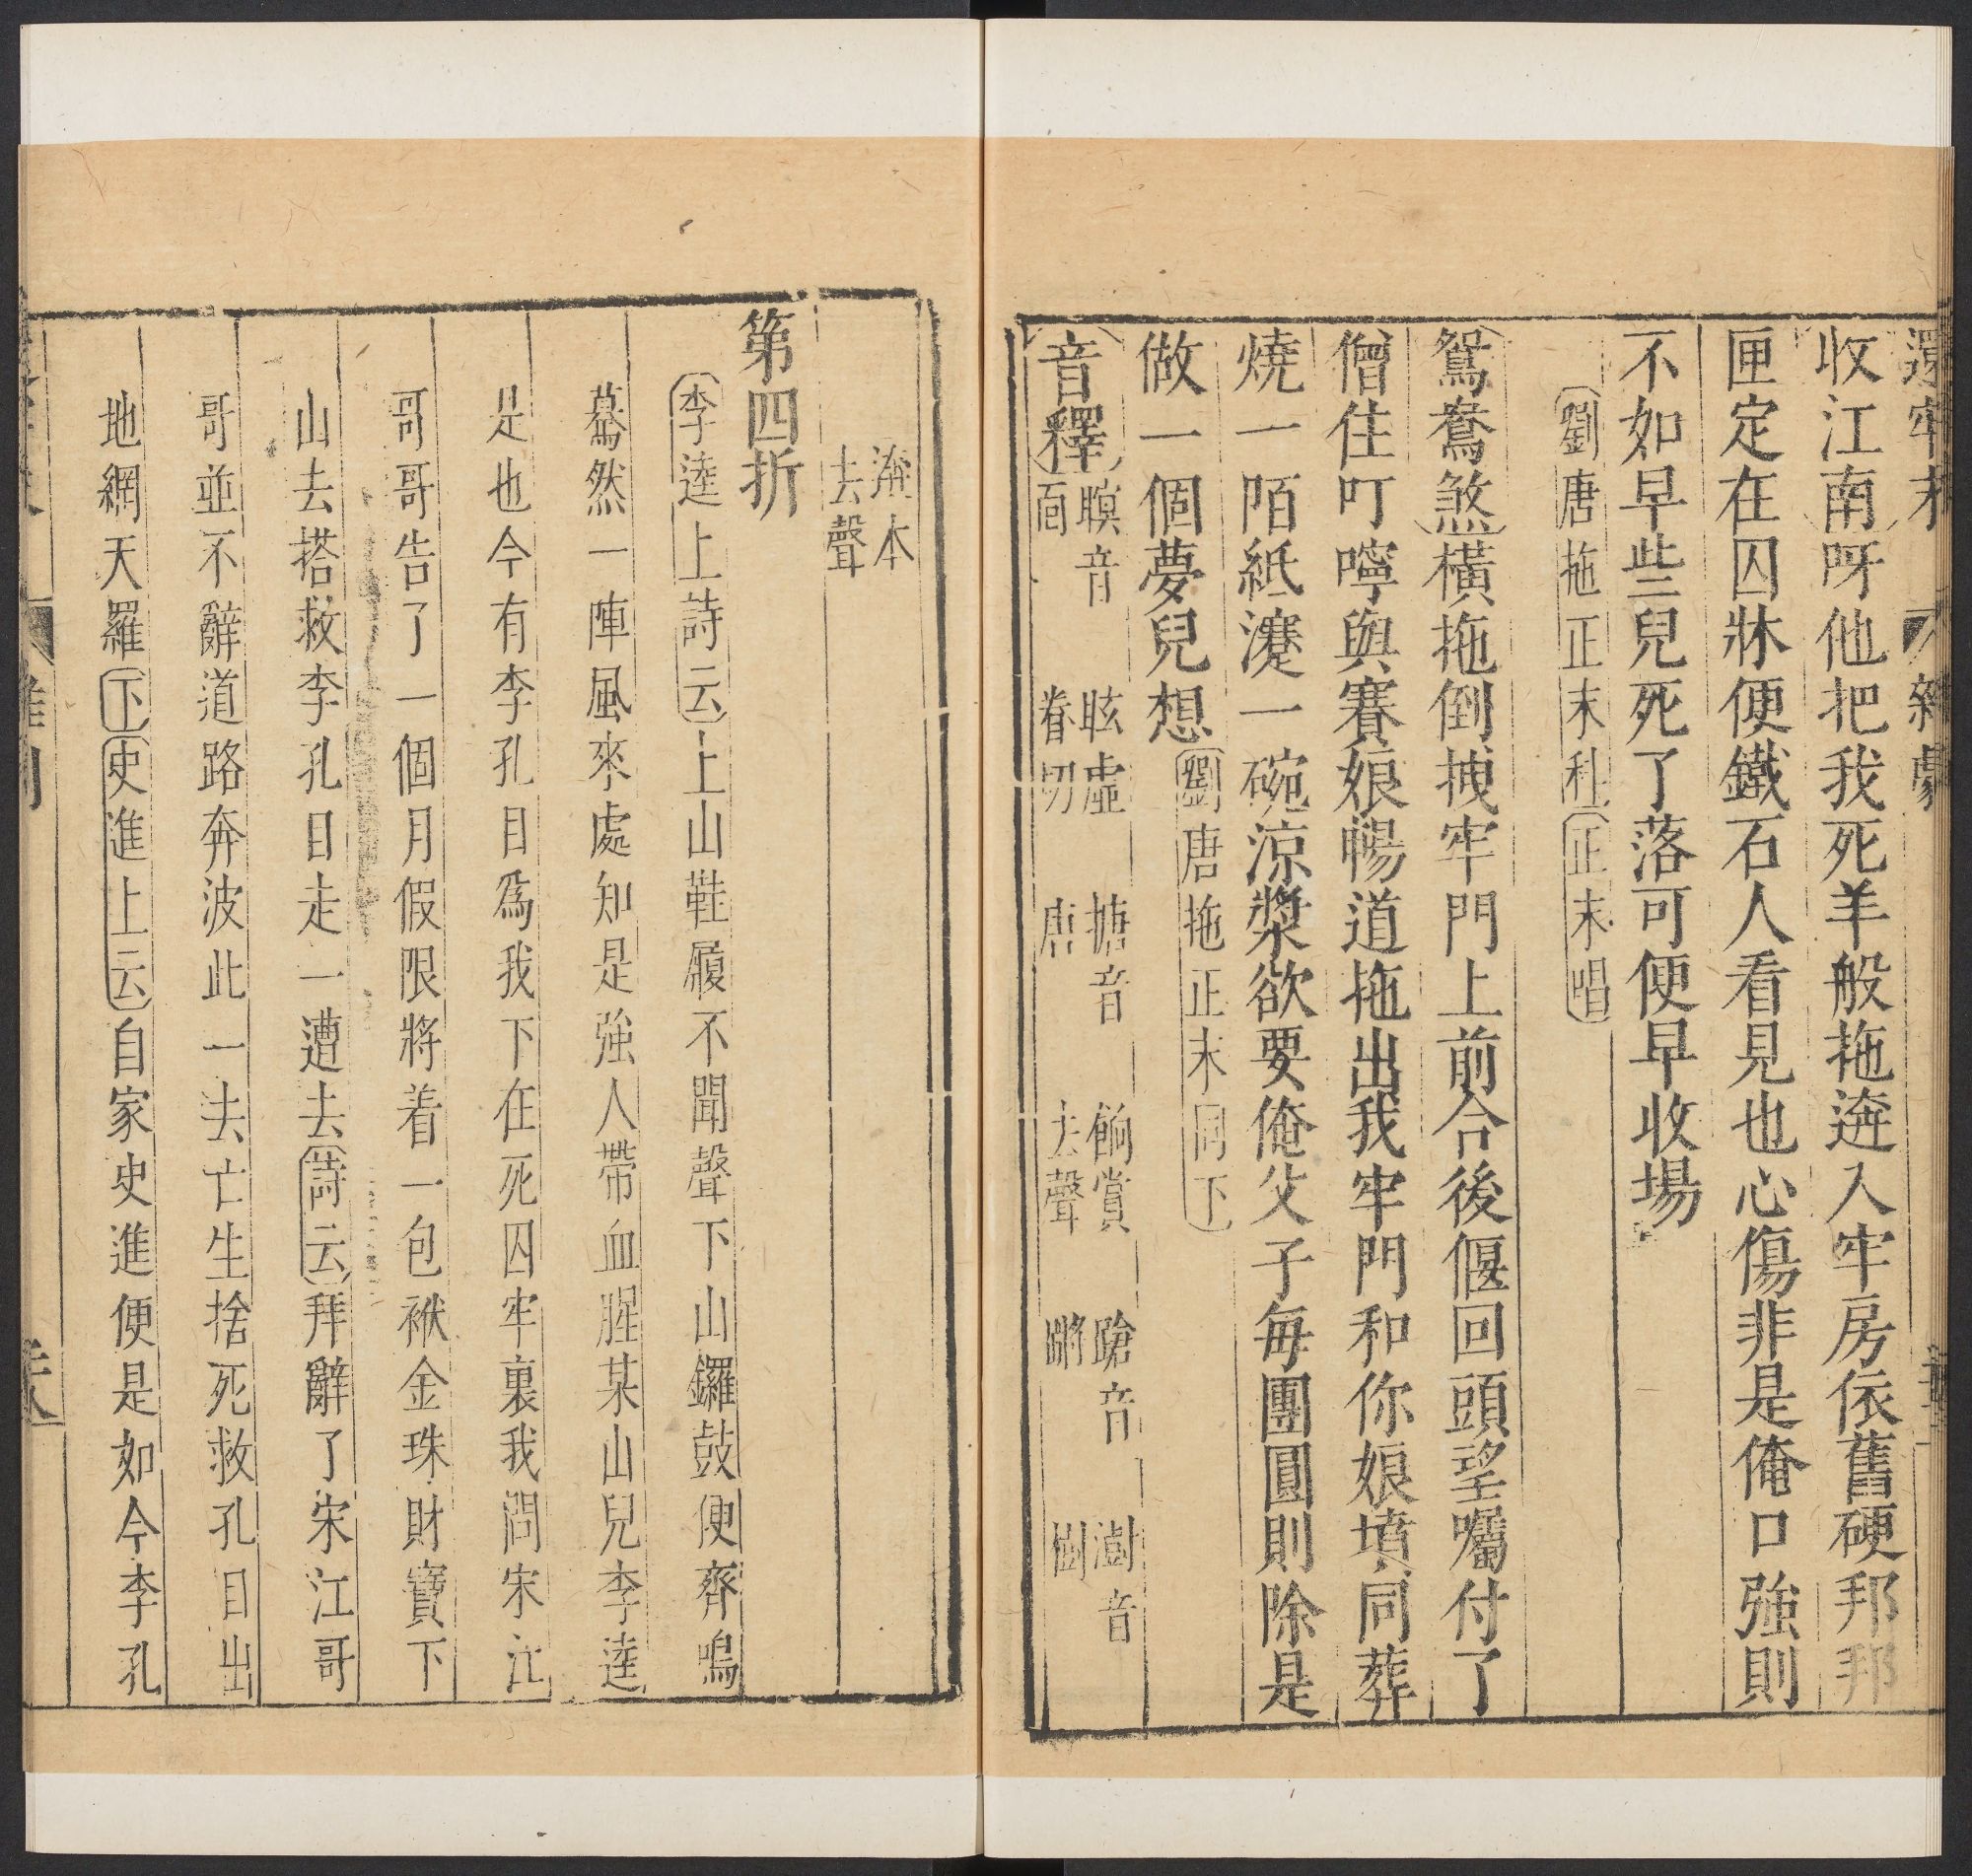 還牢末 雜劇
收江南呀他把我死羊般拖逩入牢房依舊硬邦邦
匣定在囚牀便鐵石人看見也心傷非是俺口強則
不如早些兒死了落可便早收場
劉唐拖正末科正末唱
鴛鴦煞橫拖倒拽牢門上前合後偃回頭望囑付了
僧住叮嚀與賽娘暢道拖出我牢門和你娘墳同葬
燒一陌紙瀽一碗涼漿欲要俺父子每團圓則除是
做一個夢兒想劉唐拖正末同下
音釋 瞑音面 眩虛眷切 搪音唐 餉賞去聲 蹌音蹡 澍音樹
逩本去聲
第四折
李逵上詩云上山鞋履不聞聲下山鑼鼓便齊鳴
驀然一陣風來處知是強人帶血腥某山兒李逵
是也今有李孔目爲我下在死囚牢裏我問宋江
哥哥告了一個月假限將着一包袱金珠財寶下
山去搭救李孔目走一遭去詩云拜辭了宋江哥
哥並不辭道路奔波此一去亡生捨死救孔目出
地網天羅下史進上云自家史進便是如今李孔